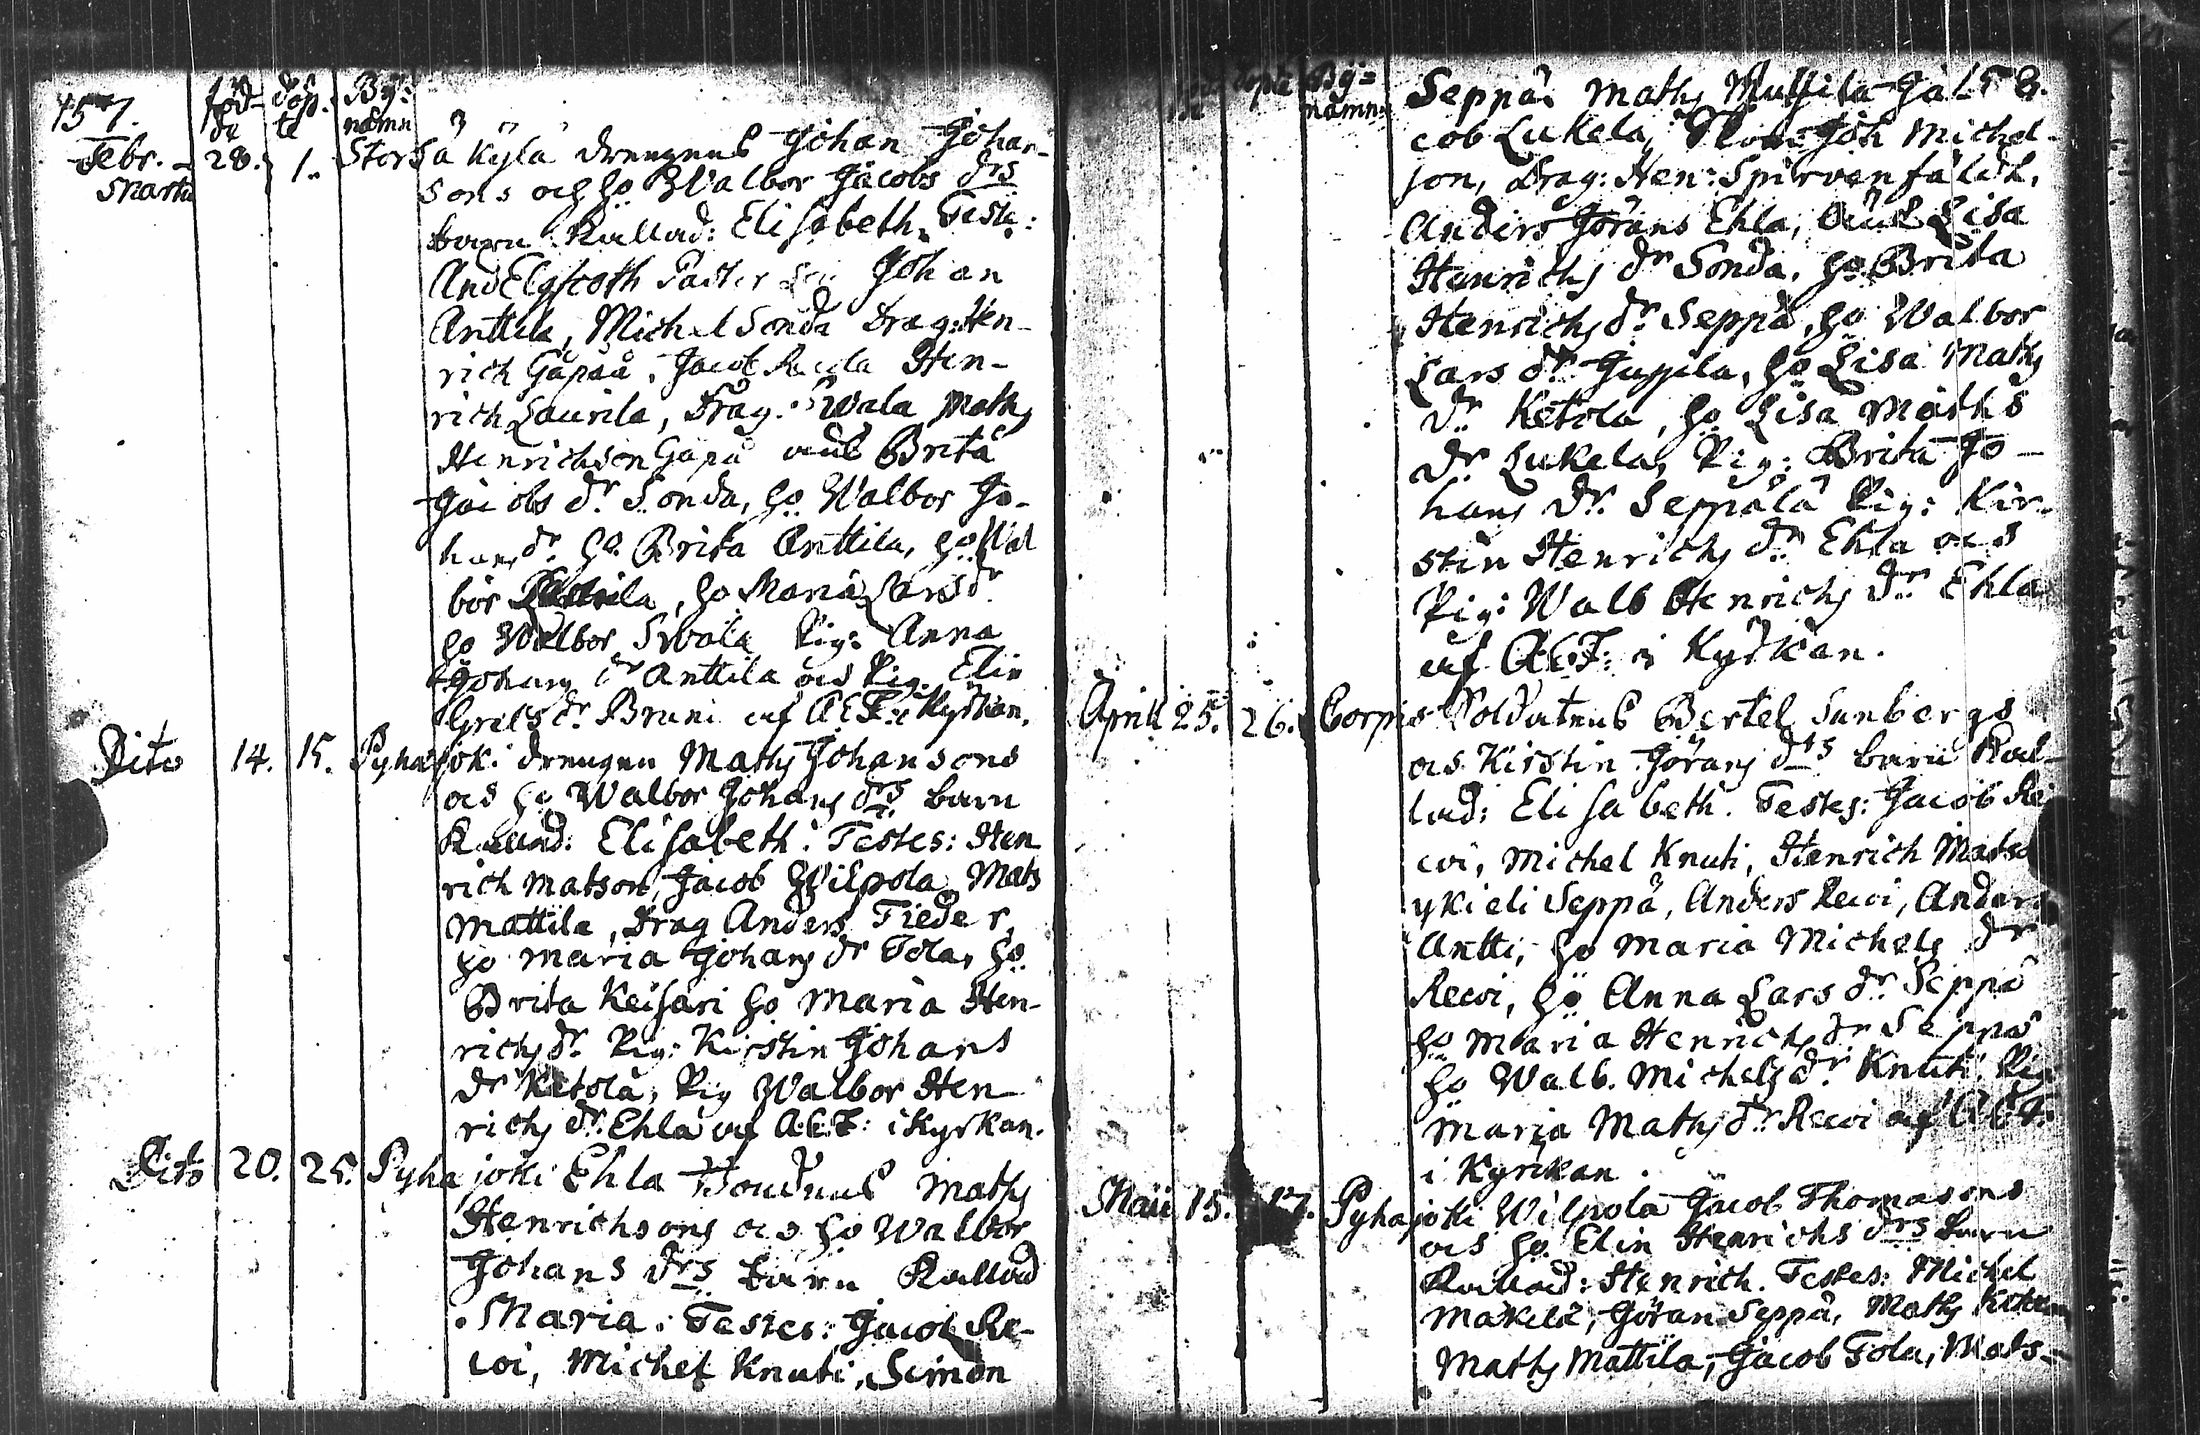 157.
föd-
da
döp-
te
By:
namn
Febr. - 28. 1. Storsä Kylä drengens Johan Johan-
Martii
sons och ho Walbor Jacobs drs
barn Kallad: Elisabeth. Teste:
And Johan
Anttila, Michel Sonda Drag: Hen-
rich Gäpää, Jacob Hen-
rich Laurila, Drag: Swala Maths
Henrichson Gäpä Brita
Jacobs dr Sonda, ho Walbor Jo-
hans dr ho Brita Anttila, ho Wal
bor ho Maria Larsdr
ho Walbor Swala Pig: Anna
Johans dr Anttila ocs Pig. Elin
Grels dr Bruni af A&T: i Kyrkan.
Dito 14. 15. Pyhäjoki drengen Maths Johansons
ocs ho Walbor Johans drs barn
Kallad: Elisabeth. Testes: Hen
rich Matson, Jacob Wilpola Mats
Mattila, Drag Anders Fieder,
ho Maria Johans dr Tola, ho
Brita Keisari ho Maria Hen-
richs dr Pig: Kirstin Johans
dr Ketola, Pig Walbor Hen-
richs dr Ehla af A&T: i Kyrkan.
Dito 20. 25. Pyhajoki Ehla Maths
Henrichsons ocs ho Walbor
Johans drs barn Kallad
Maria. Testes: Jacob Re-
wi, Michel Knuti, Simon
By=
namn
Seppä, Maths Mattila Ja- 158.
cob Lukela, Joh Michel-
son, Drag: Hen: Spirvenfäldt,
Anders Jörans Ehla, Lisa
Henrichs dr Sonda, ho Brita
Henrichs dr Seppä, ho Walbor
Lars dr ho Lisa Maths
dr Ketola, ho Lisa Maths
dr Lukela, Pig: Brita Jo-
hans dr Seppälä Pig: Kir-
stin Henrichs dr Ehla ocs
Pig: Walb Henrichs dr Ehla
af A&T: i Kyrkan.
April 25. 26. Corpis Soldatens Bertel Sunbergs
ocs Kirstin Jörans drs barn Kal-
lad: Elisabeth. Testes: Jacob Re
wi, Michel Knuti, Henrich
ykieli Seppä, Anders Rewi, Anders
Antti, ho Maria Michels dr
Rewi, ho Anna Lars dr Seppä
ho Maria Henrichs dr Seppä
ho Walb. Michels dr Knuti, Pig
Maria Maths dr Rewi af A&T:
i Kyrkan.
Maii 15. 17. Pyhajoki Wilpola Jacob Thomasons
ocs ho Elin Henrichs drs barn
Kallad: Henrich. Testes: Michel
Mäkelä, Jöran Seppä, Maths
Maths Mattila, Jacob Tola, Mats-